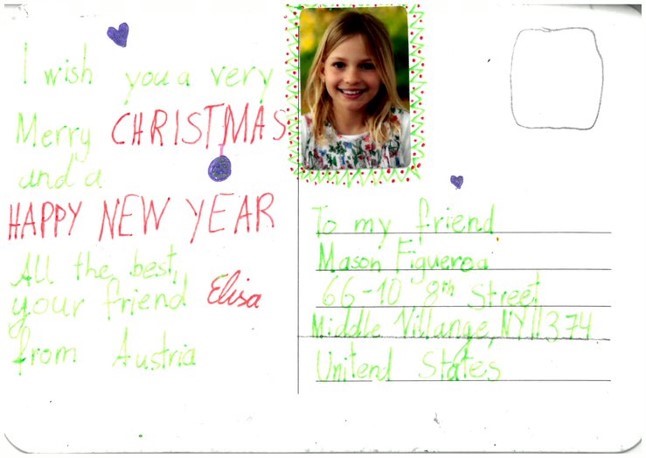 I wish you a very
Merry CHRISTMAS
and a
HAPPY NEW YEAR
All the best,
your friend Elisa
from Austria
To my friend
Mason Figueroa
66-10 8th Street
Middle Villange, NY 11374
Unitend States